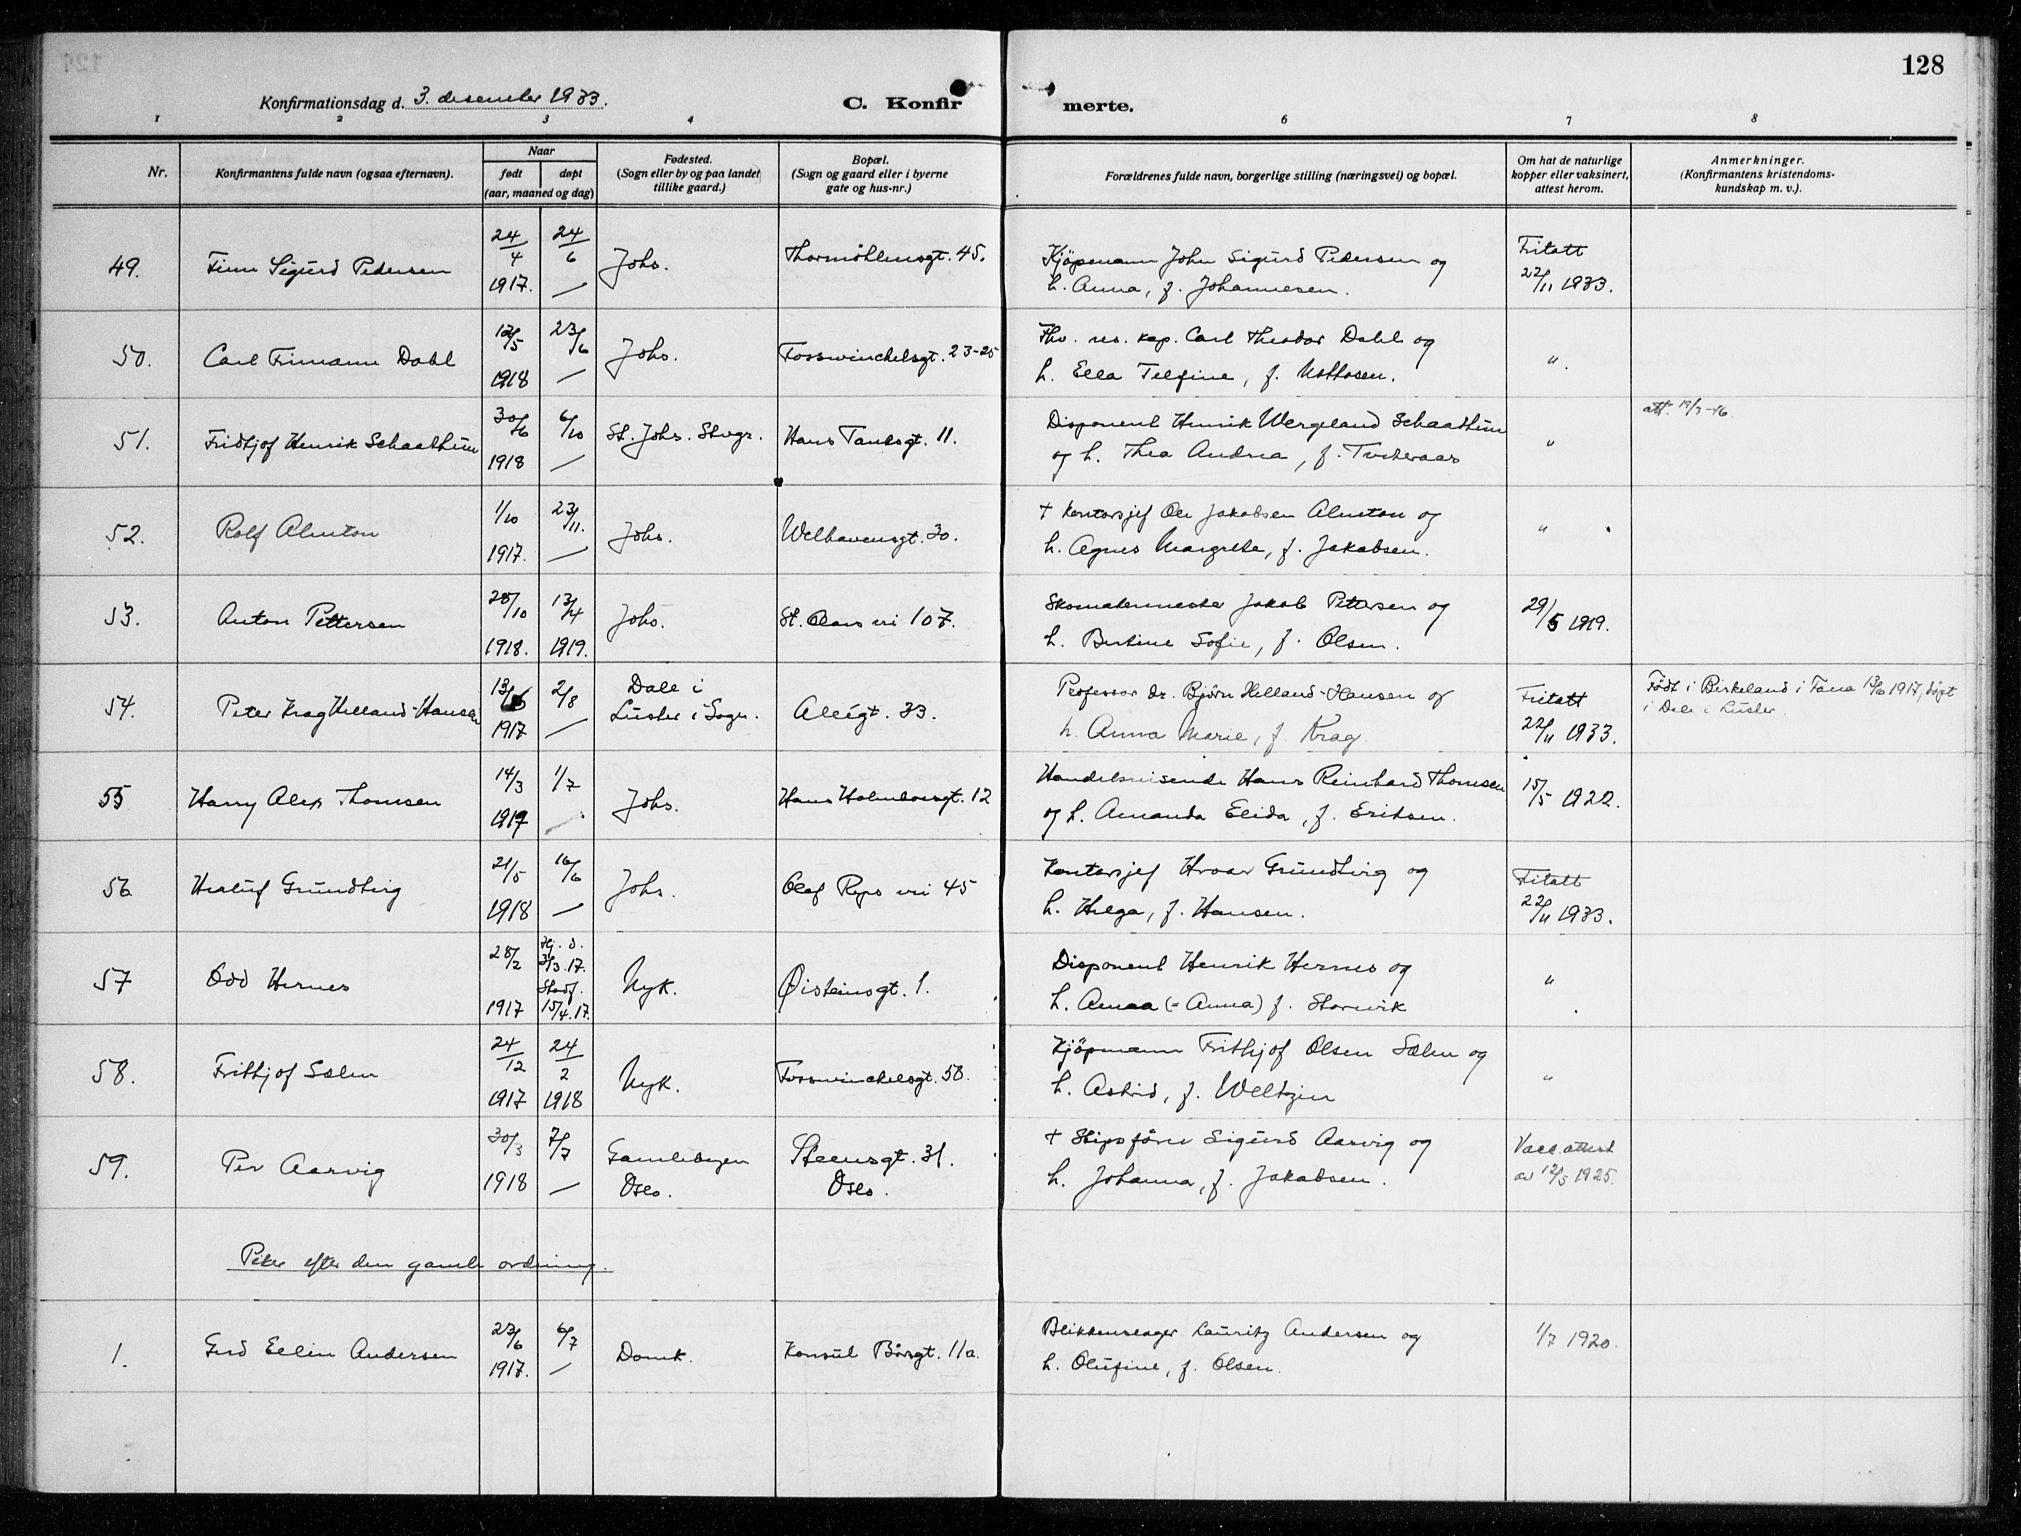 128
Konfirmationsdag d. 3. desember 1933.
C. Konfirmerte.
1 2 3 4 6 7 8
Nr.
Konfirmantens fulde navn (ogsaa efternavn).
Naar
født
døpt
(aar, maaned og dag)
Fødested.
(Sogn eller by og paa landet
tillike gaard.)
Bopæl.
(Sogn og gaard eller i byerne
gate og hus-nr.)
Forældrenes fulde navn, borgerlige stilling (næringsvei) og bopæl.
Om hat de naturlige
kopper eller vaksinert,
attest herom.
Anmerkninger.
(Konfirmantens kristendoms-
kundskap m. v.).
49. Finn Sigurd Pedersen 24/4 1917. 24/6 — Johs. Thormöhlensgt. 45.
Kjöpmann John Sigurd Pedersen og
h. Anna, f. Johannesen.
Fritatt
22/11 1933.
50. Carl Frimann Dahl 12/5 1918 23/6 — Johs. Fosswinckelsgt. 23-25
Fhv. res. kap. Carl Theodor Dahl og
h. Ella Telfine, f. Mottosen.
"
51. Fridtjof Henrik Schaathun 30/6 1918 6/10 — St. Johs. Stvgr. Hans Tanksgt. 11.
Disponent Henrik Wergeland Schaathun
og h. Thea Andrea, f. Tveteraas
"
att. 19/3-46.
52. Rolf Almton 1/10 1917. 23/11. — Johs. Welhavensgt. 30.
+ Kontorsjef Ole Jakobsen Almton og
h. Agnes Margrethe, f. Jakobsen.
"
53. Anton Pettersen 28/10 1918. 13/4 1919. Johs. St. Olavs vei 107.
Skomakermester Jakob Pettersen og
h. Bertine Sofie, f. Olsen.
29/5 1919.
54. Peter Krag Helland-Hansen 13/6 1917 2/8 — Dale i
Luster i Sogn. Allégt. 33.
Professor dr. Bjørn Helland-Hansen og
h. Anna Marie, f. Krag.
Fritatt
22/11 1933.
Født i Birkeland i Fana 13/6 1917, døpt
i Dale i Luster.
55 Harry Alex Thomsen 14/3 1917 1/7 — Johs. Hans Holmboesgt. 12
Handelsreisende Hans Reinhard Thomsen
og h. Amanda Elida, f. Eriksen.
15/5 1922.
56 Herluf Grundtvig 21/5 1918 16/6 — Johs. Olaf Ryes vei 45
Kontorsjef Hroar Grundtvig og
h. Helga, f. Hansen.
Fritatt
22/11 1933.
57 Odd Hernes 28/2 1917 Hj. d.
3/3. 17.
Stadf.
15/4. 17. Nyk. Øisteinsgt. 1.
Disponent Henrik Hernes og
h. Amaa (= Anna) f. Storvik
"
58. Frithjof Sælen 24/12 1917 24/2 1918 Nyk. Fosswinckelsgt. 58.
Kjöpmann Frithjof Olsen Sælen og
h. Astrid, f. Weltzin
"
59. Per Aarvig 30/3 1918 7/7 — Gamlebyen
Oslo. Steensgt. 31.
Oslo.
+ Skipsförer Sigurd Aarvig og
h. Johanna, f. Jakobsen.
Vacc. attest
av 12/5 1925.
Piker efter den gamle ordning.
1. Gerd Ellin Andersen 23/6 1917. 6/7 — Domk. Konsul Børsgt. 11a.
Blikkenslager Lauritz Andersen og
h. Olufine, f. Olsen.
1/7 1920.